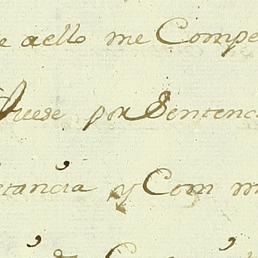 e aello me Compe
Viese por Sentenc
tancia y Com m